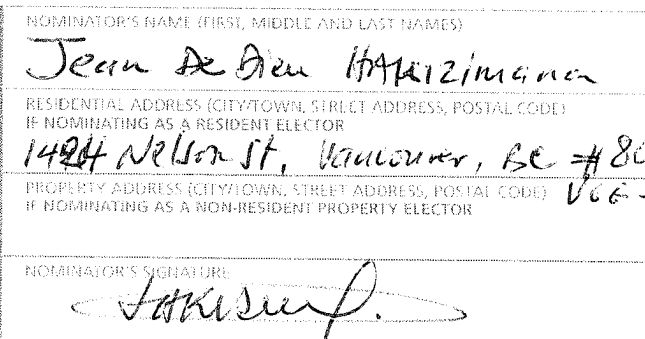 NOMINATOR'S NAME (FIRST, MIDDLE AND LAST NAMES)
Jean De Dieu HAKIZimana
RESIDENTIAL ADDRESS (CITY/TOWN, STREET ADDRESS, POSTAL CODE)
IF NOMINATING AS A RESIDENT ELECTOR
Nelson St, Vancouver, BC #80
PROPERTY ADDRESS (CITY/TOWN, STREET ADDRESS, POSTAL CODE) V6G-
IF NOMINATING AS A NON-RESIDENT PROPERTY ELECTOR
NOMINATOR'S SIGNATURE